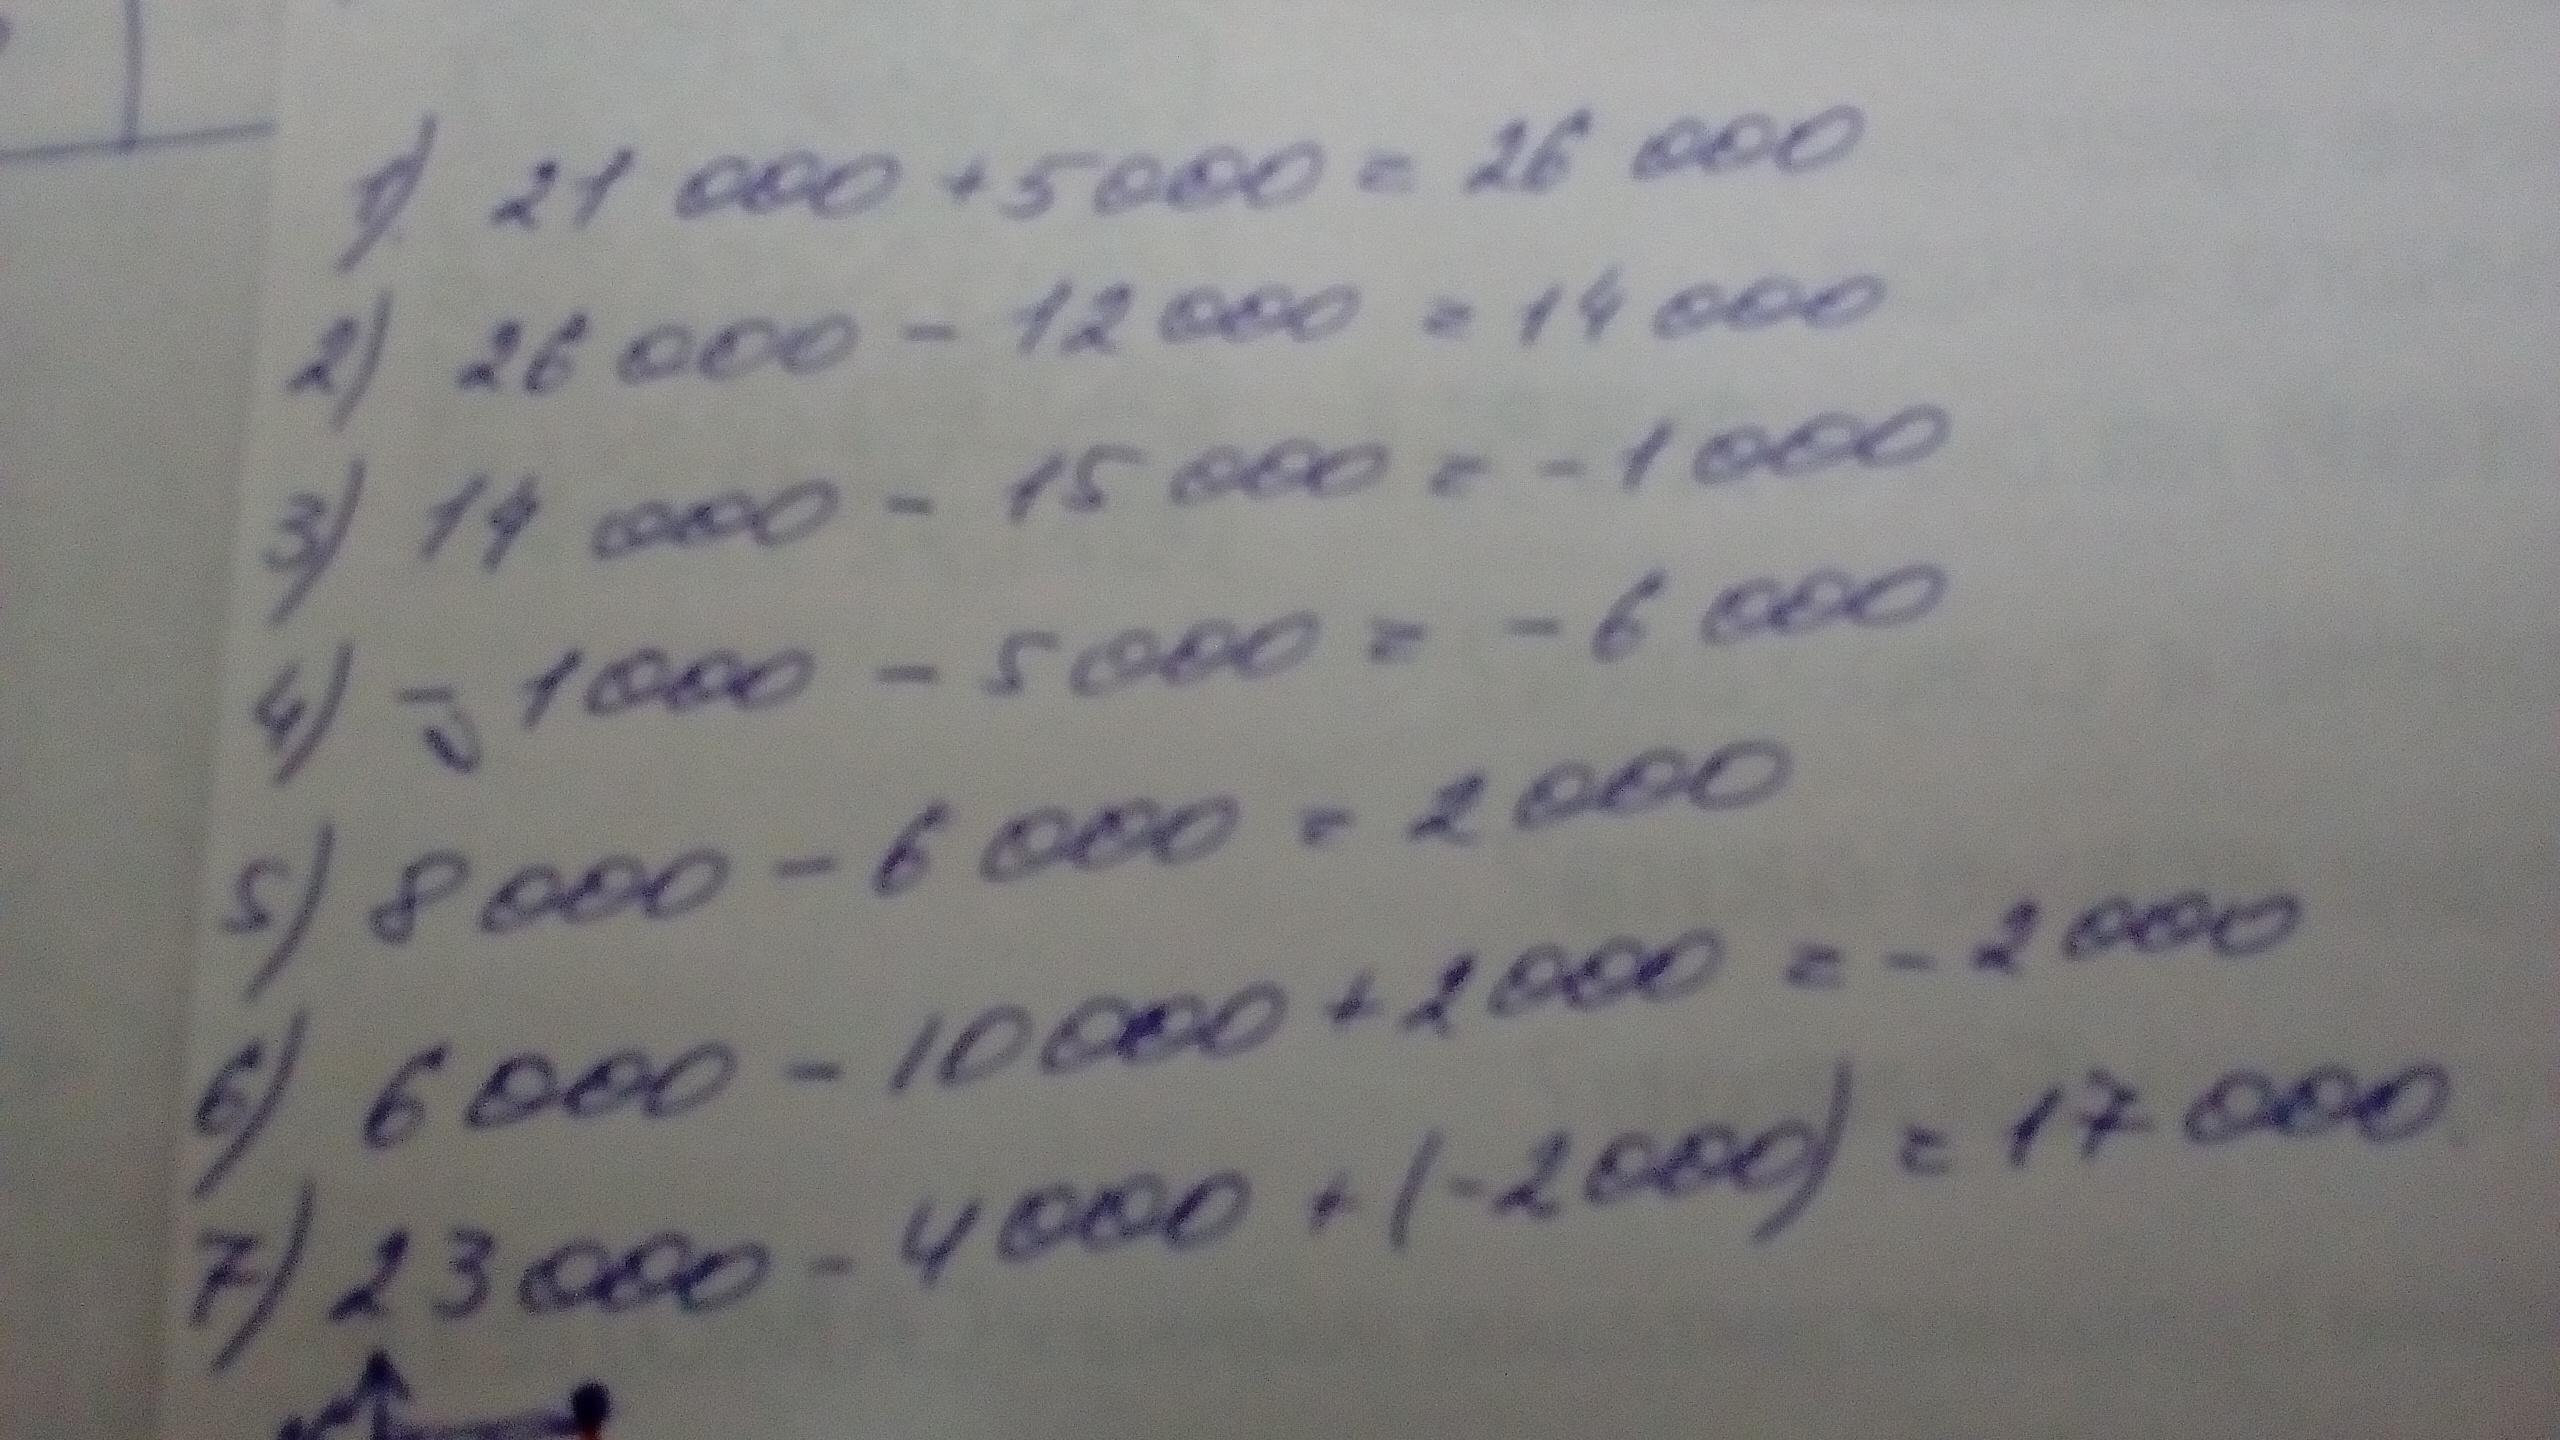 1) 21 000 + 5 000 = 26 000
2) 26 000 - 12 000 = 14 000
3) 14 000 - 15 000 = - 1 000
4) - 1 000 - 5 000 = - 6 000
5) 8 000 - 6 000 = 2 000
6) 6 000 - 10 000 + 2 000 = - 2 000
7) 23 000 - 4 000 + (-2 000) = 17 000